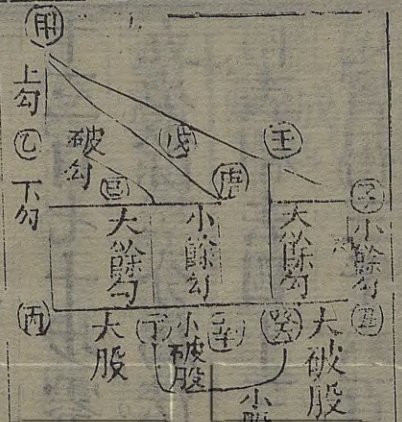 甲
上勾
乙
下勾
丙
破勾
戊
己
庚
壬
子
大餘勾
小餘勾
大餘勾
小餘勾
大股
丁
小破股
辛
癸
大破股
丑
小股